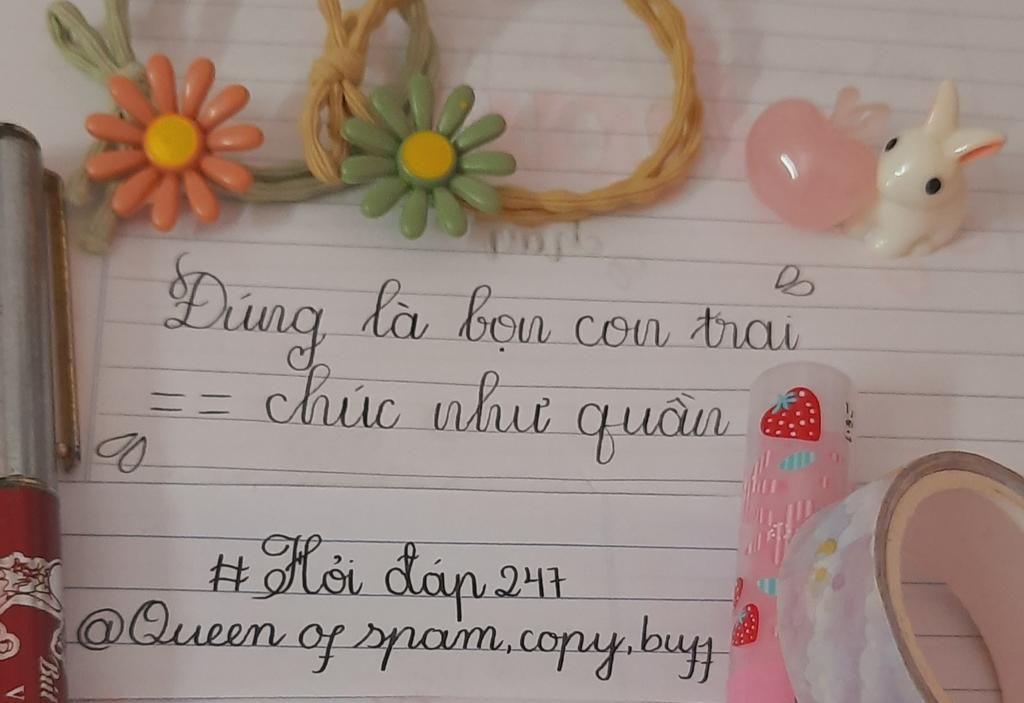 Đúng là bọn con trai
== chúc như quần
# Hỏi đáp 247
@Queen of spam, copy, buff